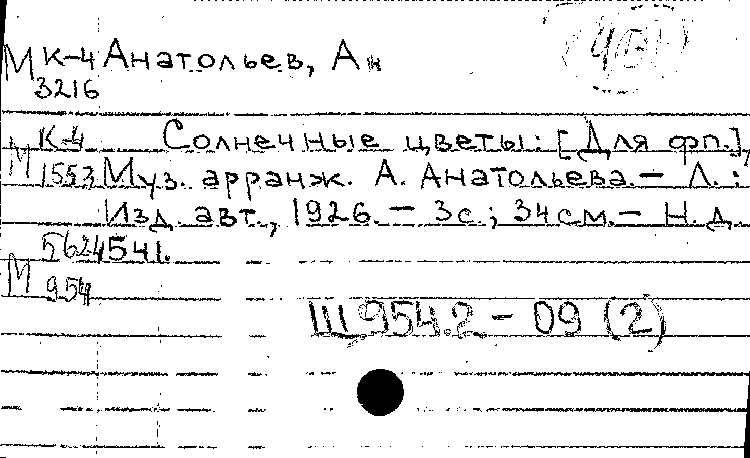 М К-4 Анатольев, А.
3216
К-4 Солнечные цветы: [Для фп.],
М 1553 Муз. арранж. А. Анатольева. – Л.:
Изд. авт., 1926. – 3 с.; 34 см. – Н. д.
5624541.
М 954
Ш 954.2 – 09 (2)